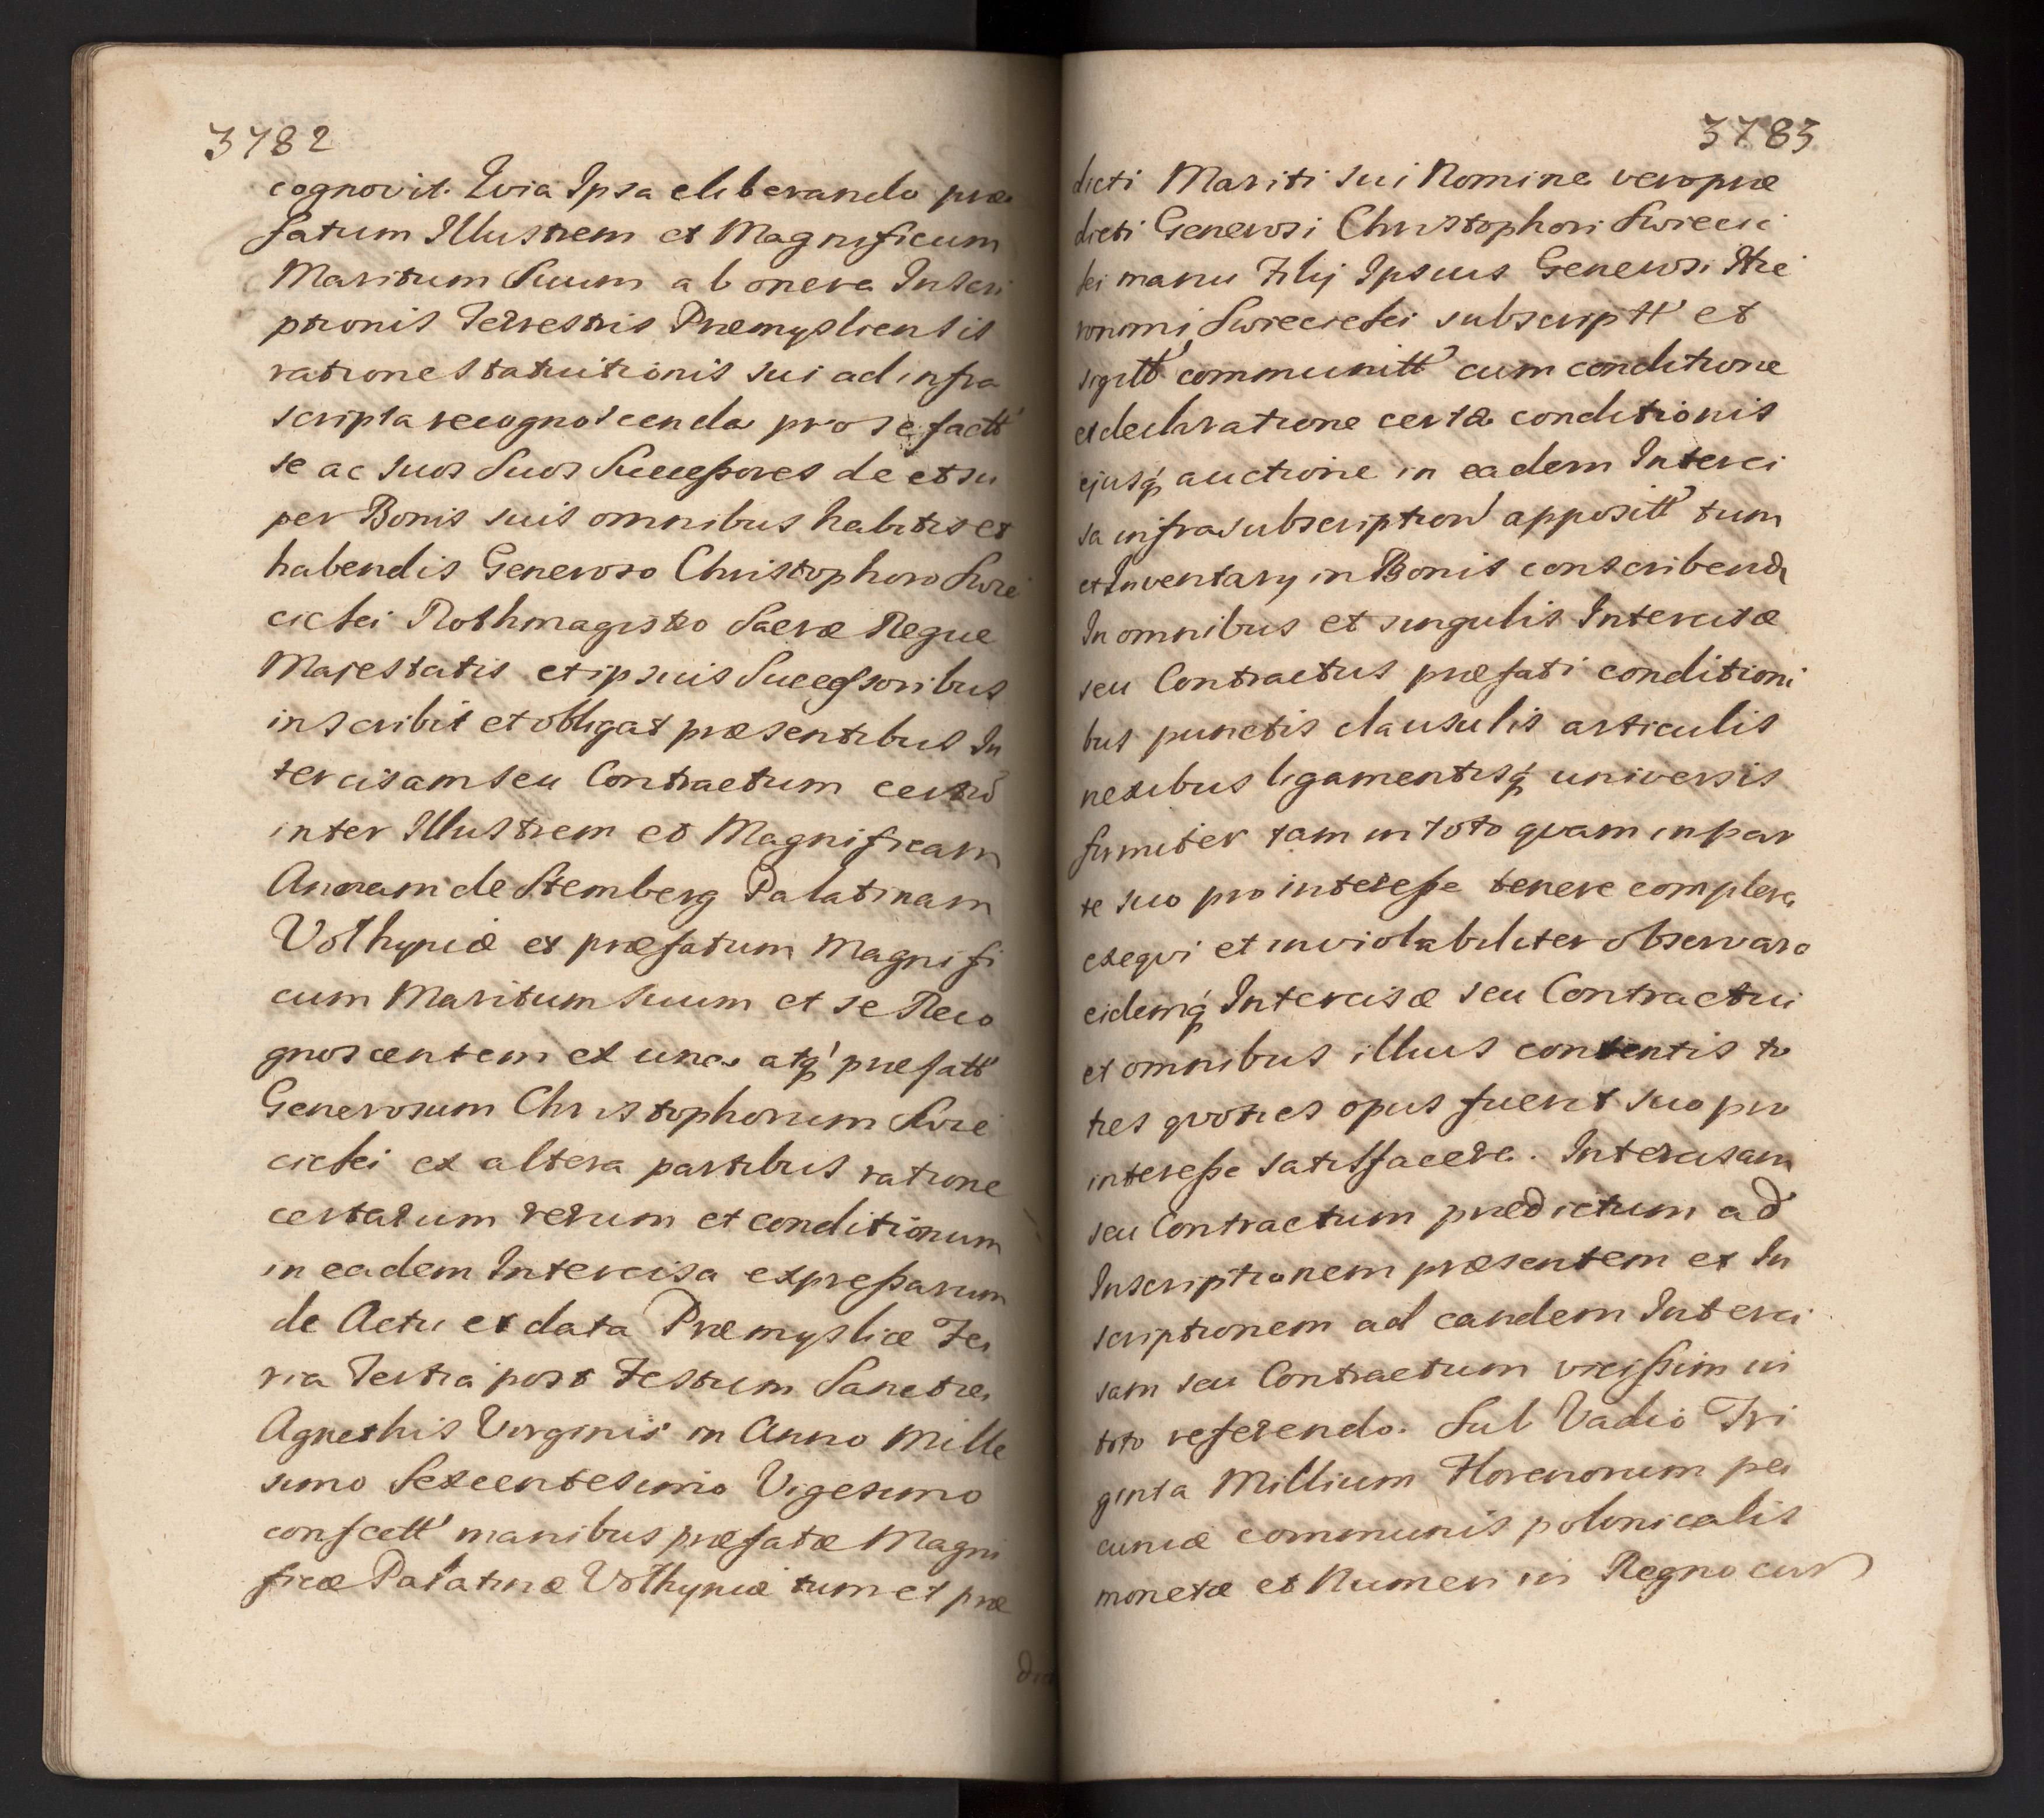 3782
cognovit. Qvia Ipsa eliberando præ
fatum Illustrem et Magnificum
Maritum Suum ab onere Inscri
ptionis Terrestris Præmysliensis
ratione statuitionis sui ad infra
scripta recognoscenda pro se factt'
se ac suos Suos Successores de et su
per Bonis suis omnibus habitis et
habendis Generoso Christophoro Swie
cicki Rothmagistro Sacræ Regiæ
Majestatis et ipsius Successoribus
inscribit et obligat præsentibus In
tercisam seu Contractum certũ
inter Illustrem et Magnificam
Annam de Stemberg Palatinam
Volhyniæ et præfatum Magnifi
cum Maritum suum et se Reco
gnoscentem ex una atq' præfatt'
Generosum Christophorum Swie
cicki ex altera partibus ratione
certarum rerum et conditionum
in eadem Intercisa expressarum
de Actu et data Præmysliæ Fe
ria Tertia post Festum Sanctæ
Agnethis Virginis in Anno Mille
simo Sexcentesimo Vigesimo
confectt' manibus præfatæ Magni
ficæ Palatinæ Volhyniæ tum et præ
3783
dicti Mariti sui Nomine vero præ
dicti Generosi Christophori Swieci
cki manu Filij Ipsius Generosi Hie
ronomi Swiecicki subscriptt' et
sigitt' communitt' cum conditione
et declaratione certæ conditionis
ejusq' auctione in eadem Interci
sa infra subscription' appositt' tum
et Inventary in Bonis conscribend
In omnibus et singulis Intercisæ
seu Contractus præfati conditioni
bus punctis clausulis articulis
nexibus ligamentisq' universis
firmiter tam in toto qvam in par
te suo pro interesse tenere complere
exeqvi et inviolabiliter observare
eidemq' Intercisæ seu Contractui
et omnibus illius contentis to
ties qvoties opus fuerit suo pro
interesse satisfacere. Intercisam
seu Contractum prædictum ad
Inscriptionem præsentem et In
scriptionem ad eandem Interci
sam seu Contractum vicissim in
toto referendo. Sub Vadio Tri
ginta Millium Florenorum pe
cuniæ communis polonicalis
monetæ et Numeri in Regno curr